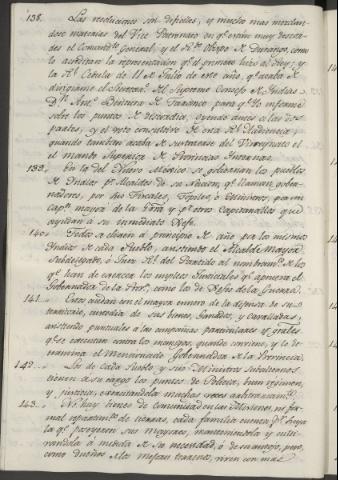 138. Las resoluciones son dificiles, y mucho mas mezclan-
dose materias del Vice Patronato en qe. están muy descorda-
des el Comandte. General, y el Rl. Obispo de Durango, como
lo acredita la representación qe. el primero hizo al Rey; y
la Rl. Cedula de 11 de Julio de este año, qe. acaba de
dirigirme el Secretario del Supremo Consejo de Indias
Dn. Anto. Ventura de Taranco para qe. le informe
sobre los puntos de discordia, oyendo antes a las dos
partes, y el voto consultivo de esta Rl. Audiencia; y
quando tambien acaba de sustraerse del Virreynato el
el mando Superior de Provincias Internas.
139. En la del Nuevo México se gobiernan los pueblos
de Indios pr. Alcaldes de su Nacion, qe. llaman gober-
nadores, por dos Fiscales, Topiles, ó Ministros, por un
capn. mayor de la Guerra y qe. otros Capitancillos que
ayudan á su inmediato Xefe.
140. Todos se eligen á principio de año por los mismos
Indios de cada Pueblo, asistiendo el Alcalde Mayor,
Subdelegado, ó Juez Rl. del Partido al nombramto. de los
qe. han de exercer los empleos Judiciales qe. aprueva el
Gobernador de la Prova. como los de Xefe de la Guerra.
141. Estos cuidan con el mayor esmero de la defensa de su
territorio, custodia de sus bienes, Ganados, y cavalladas,
asistiendo puntuales á las campañas particulares y grales.
que se executan contra los enemigos, quando conviene, y lo de-
termina el mencionado Gobernador de la Provincia.
142. Los de cada Pueblo y sus Ministros subalternos
tienen á su cargo los puntos de Policia, buen regimen,
y justicia, executandola muchas veces arbitrariamte.
143. No hay bienes de Comunidad en las Misiones, ni for-
mal repartimto. de tierras, cada familia cuenta pr. suya
la qe. poseyeron sus mayores, manteniendola y culti-
vandola á medida de su necesidad, ó de su antojo, pero
como dueños de la mejor tierra, viven con mas